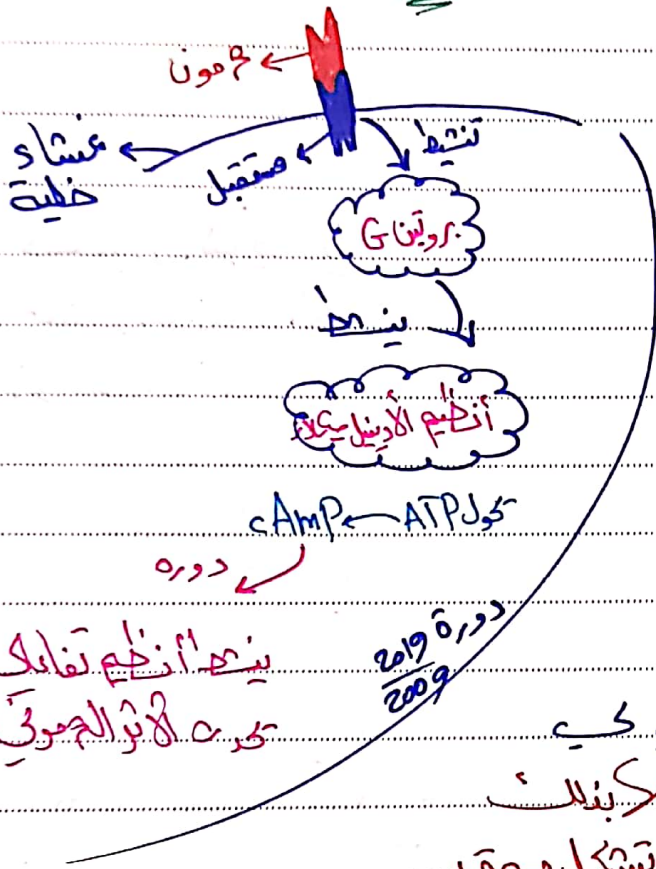 هرمون
غشاء
خلية
مستقبل
تنشيط
بروتين G
ينشط
أنظيم الأدينيل سيكلاز
تحول ATP ← cAmP
دوره
ينشط أنظيم تفاعلات
تحدث الأثر الهرموني
دورة 2019
2009
كي
بذلك